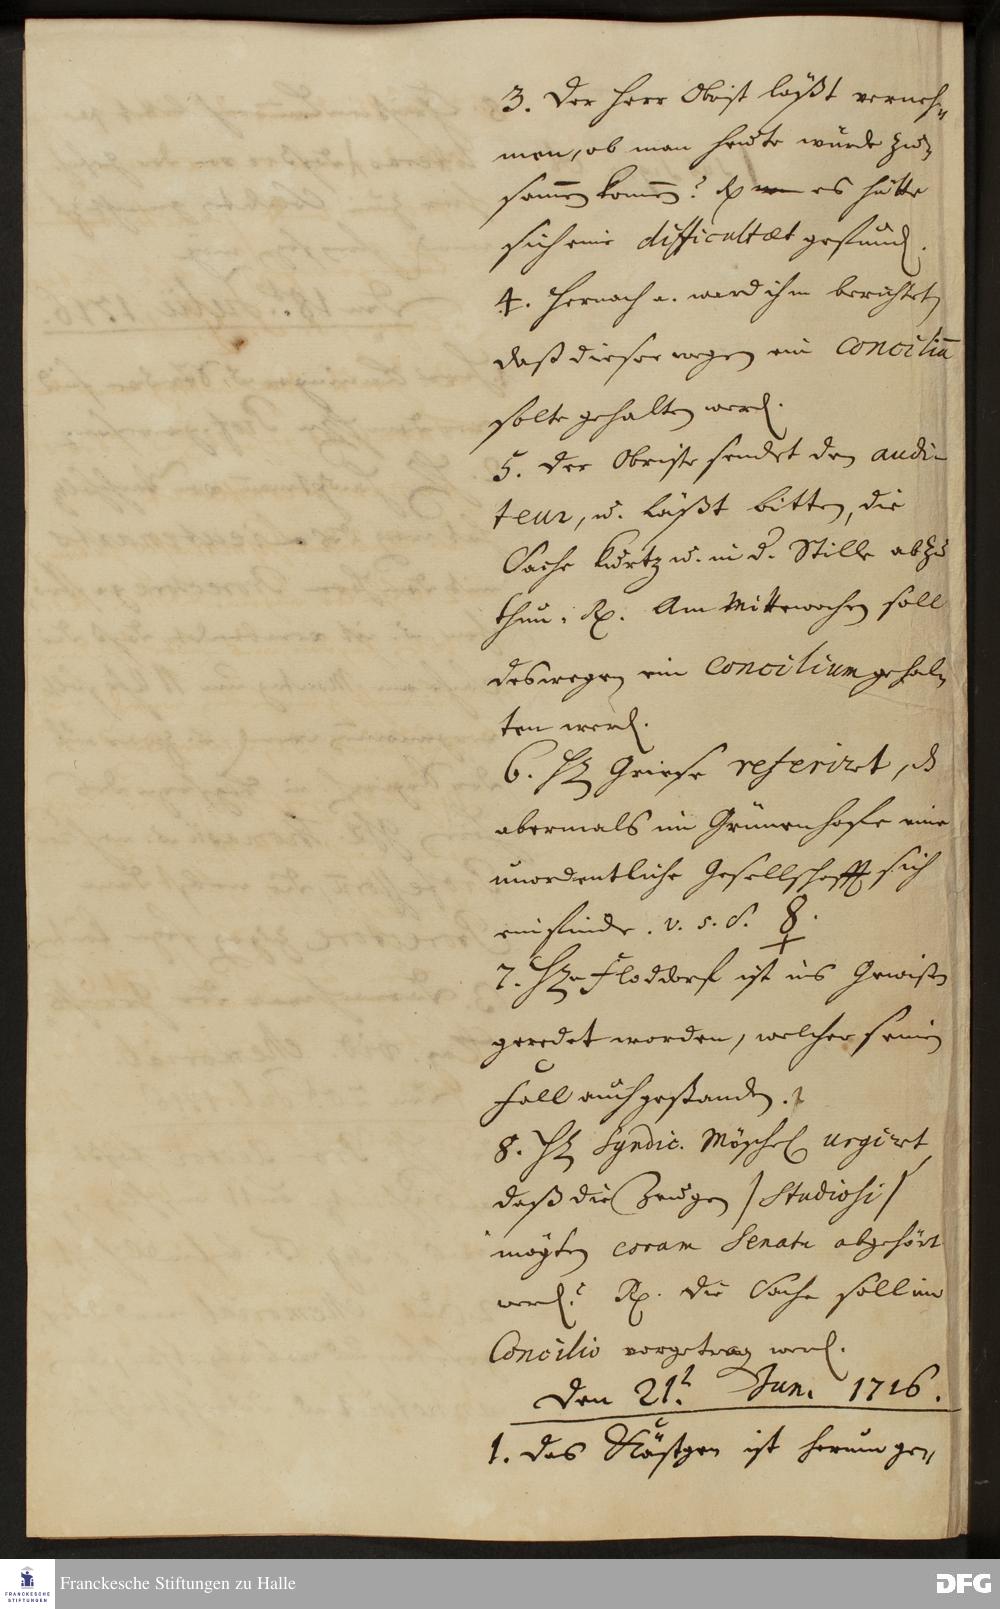 3. Der Herr Obrist läßt verneh-
men, ob man heute würde zu-
samen komen? Rp es hätte
sich eine difficultæt gefund.
4. Hernach a. ward ihm berichtet
daß dieser wegen ein conciliu
solte gehalten werd.
5. Der Obriste sendet den audi-
teur, u. läßt bitten, die
Sache kurtz u. in d. Stille abzu
thun. Rp. Am Mittwochen soll
deswegen ein Concilium gehal-
ten werd.
6. H Griese referirt, dß
abermals im Grünenhofe eine
unordentliche Gesellschafft sich
einfinde. v. s. S. 8.
7. H Floddorf ist ins Gewißen
geredet worden, welcher seinen
Fall auch gestanden.
8. H Syndic. Möschel urgirt
daß die Zeugen / Studiosi /
mögten coram Senatu abgehört
werd? Rp. Die Sache soll im
Concilio vorgetrag werd.
Den 21t. Jun. 1716.
1. Das Kästgen ist herum ge-
Franckesche Stiftungen zu Halle
FRANCKESCHE
STIFTUNGEN
DFG